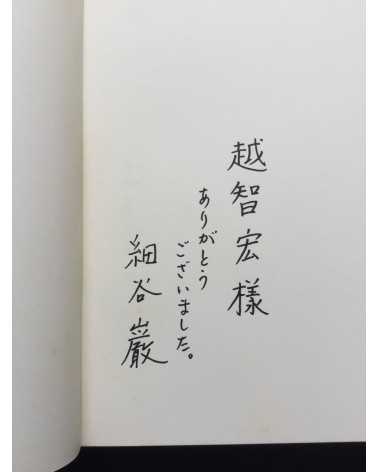 越智宏様
ありがとう
ございました。
細谷巖